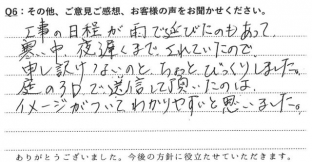 Q6：その他、ご意見ご感想、お客様の声をお聞かせください。
工事の日程が雨で延びたのもあって、
寒い中 夜遅くまでされていたので、
申し訳けないのと、ちょっとびっくりしました。
庭の3Dで送信して頂いたのは、
イメージがついてわかりやすいと思いました。
ありがとうございました。今後の方針に役立たせていただきます。